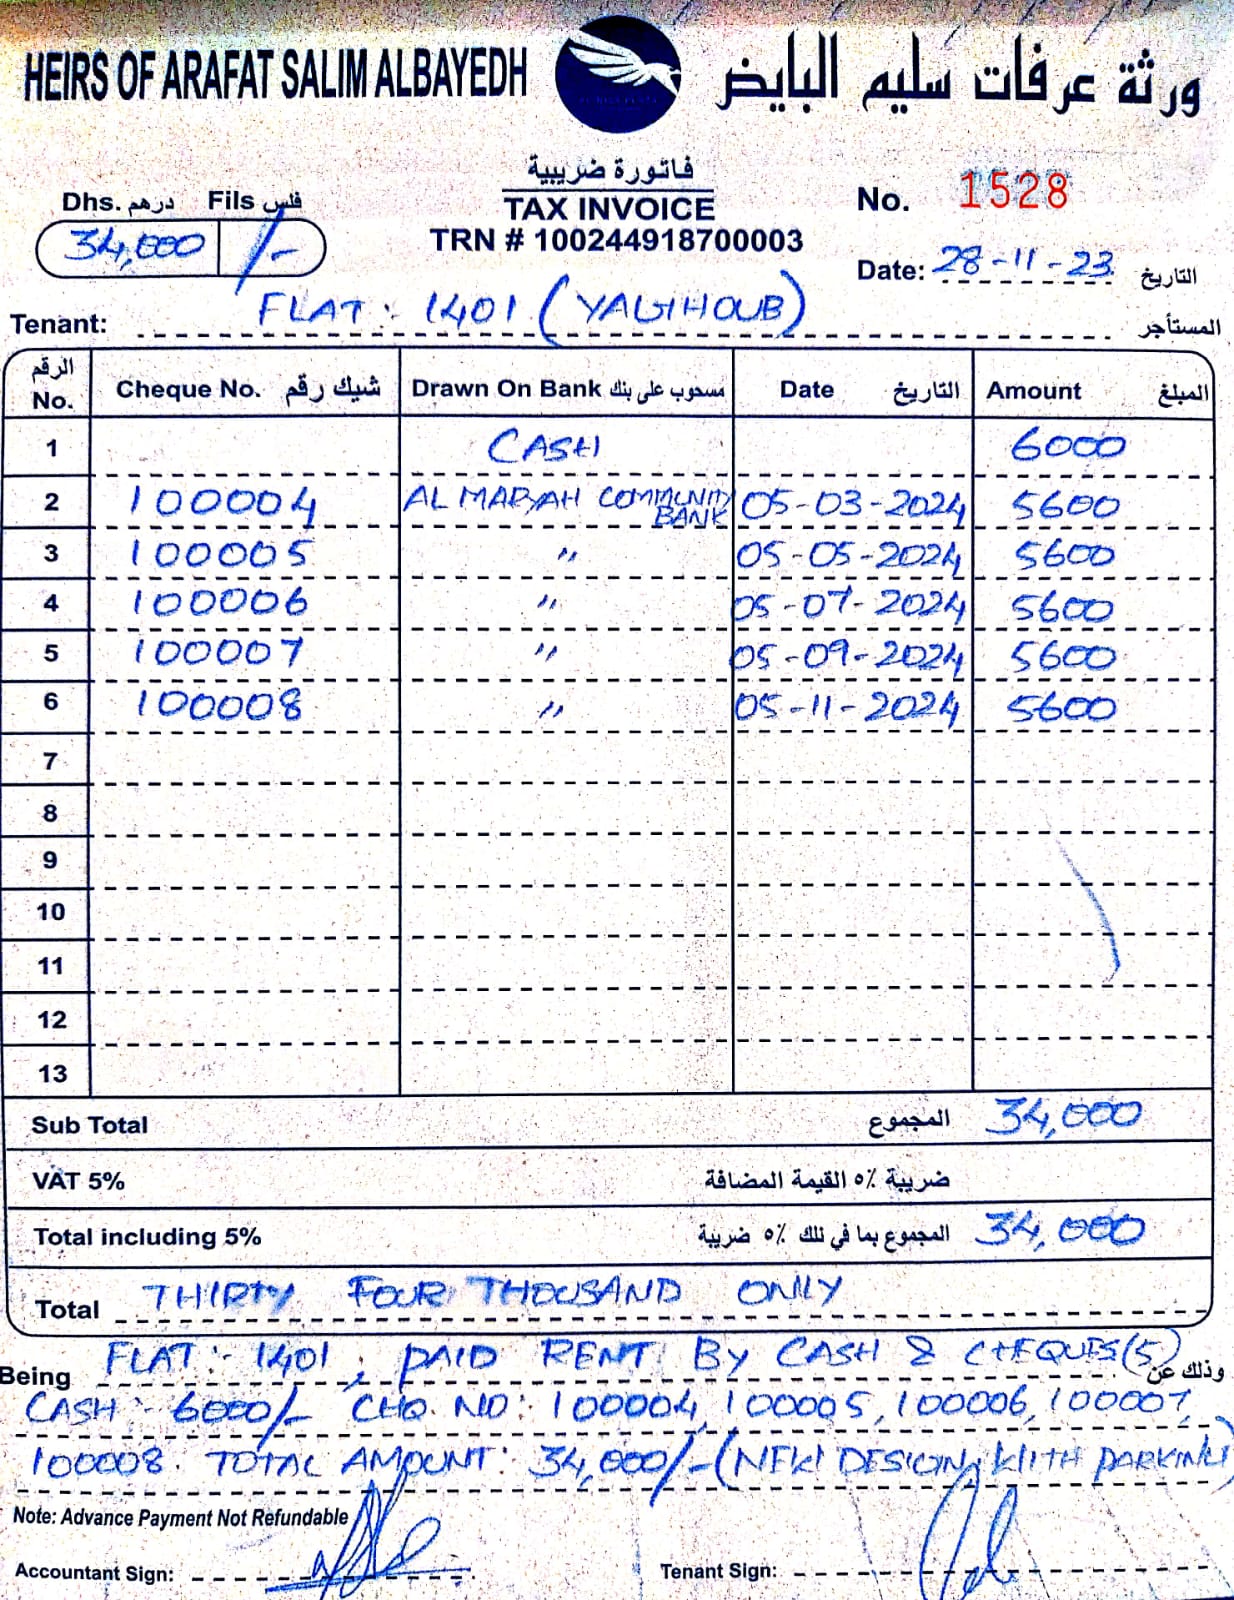 HEIRS OF ARAFAT SALIM ALBAYEDH ورثة عرفات سليم البايض
فاتورة ضريبية
TAX INVOICE
TRN # 100244918700003
Dhs. درهم Fils فلس
34,000 /-
No. 1528
Date: 28-11-23 التاريخ
Tenant: FLAT:- 1401 (YAGHOUB) المستأجر
الرقم No. Cheque No. شيك رقم Drawn On Bank مسحوب على بنك Date التاريخ Amount المبلغ
1 CASH 6000
2 100004 AL MARYAH COMMUNITY BANK 05-03-2024 5600
3 100005 " 05-05-2024 5600
4 100006 " 05-07-2024 5600
5 100007 " 05-09-2024 5600
6 100008 " 05-11-2024 5600
7
8
9
10
11
12
13
Sub Total المجموع 34,000
VAT 5% ضريبة ٥٪ القيمة المضافة
Total including 5% المجموع بما في ذلك ٥٪ ضريبة 34,000
Total THIRTY FOUR THOUSAND ONLY
Being FLAT:- 1401, PAID RENT BY CASH & CHEQUES(5) وذلك عن
CASH:- 6000/- CHQ. NO: 100004, 100005, 100006, 100007,
100008. TOTAL AMOUNT: 34,000/- (NEW DESIGN, WITH PARKING)
Note: Advance Payment Not Refundable
Accountant Sign: Tenant Sign: